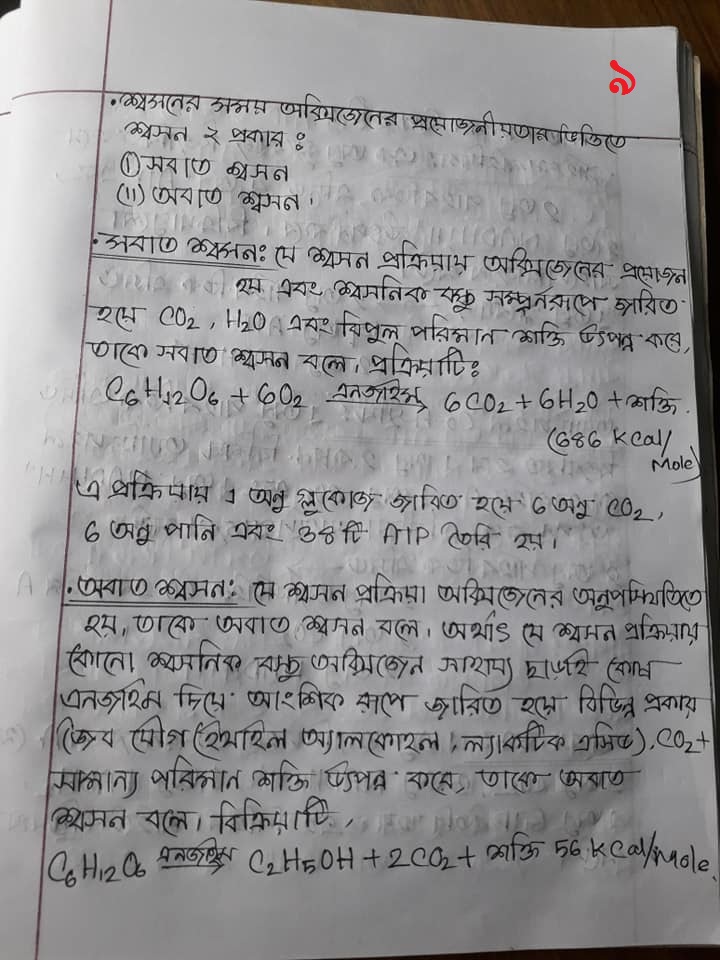 ৯
• শ্বসনের সময় অক্সিজেনের প্রয়োজনীয়তার ভিত্তিতে
শ্বসন ২ প্রকার :
(i) সবাত শ্বসন
(ii) অবাত শ্বসন।
• সবাত শ্বসন: যে শ্বসন প্রক্রিয়ায় অক্সিজেনের প্রয়োজন
হয় এবং শ্বসনিক বস্তু সম্পূর্নরূপে জারিত
হয়ে CO2, H2O এবং বিপুল পরিমান শক্তি উৎপন্ন করে,
তাকে সবাত শ্বসন বলে। প্রক্রিয়াটি:
C6H12O6 + 6O2 এনজাইম→ 6CO2 + 6H2O + শক্তি.
(686 Kcal/
Mole)
এ প্রক্রিয়ায় ১ অনু গ্লুকোজ জারিত হয়ে 6 অনু CO2,
6 অনু পানি এবং ৩৪ টি ATP তৈরি হয়।
• অবাত শ্বসন: যে শ্বসন প্রক্রিয়া অক্সিজেনের অনুপস্থিতিতে
হয়, তাকে অবাত শ্বসন বলে। অর্থাৎ যে শ্বসন প্রক্রিয়ায়
কোনো শ্বসনিক বস্তু অক্সিজেন সাহায্য ছাড়াই কোষ
এনজাইম দিয়ে আংশিক রূপে জারিত হয়ে বিভিন্ন প্রকার
জৈব যৌগ (ইথাইল অ্যালকোহল, ল্যাকটিক এসিড), CO2 +
সামান্য পরিমান শক্তি উৎপন্ন করে, তাকে অবাত
শ্বসন বলে। বিক্রিয়াটি,
C6H12O6 এনজাইম→ C2H5OH + 2CO2 + শক্তি 56 Kcal/Mole.